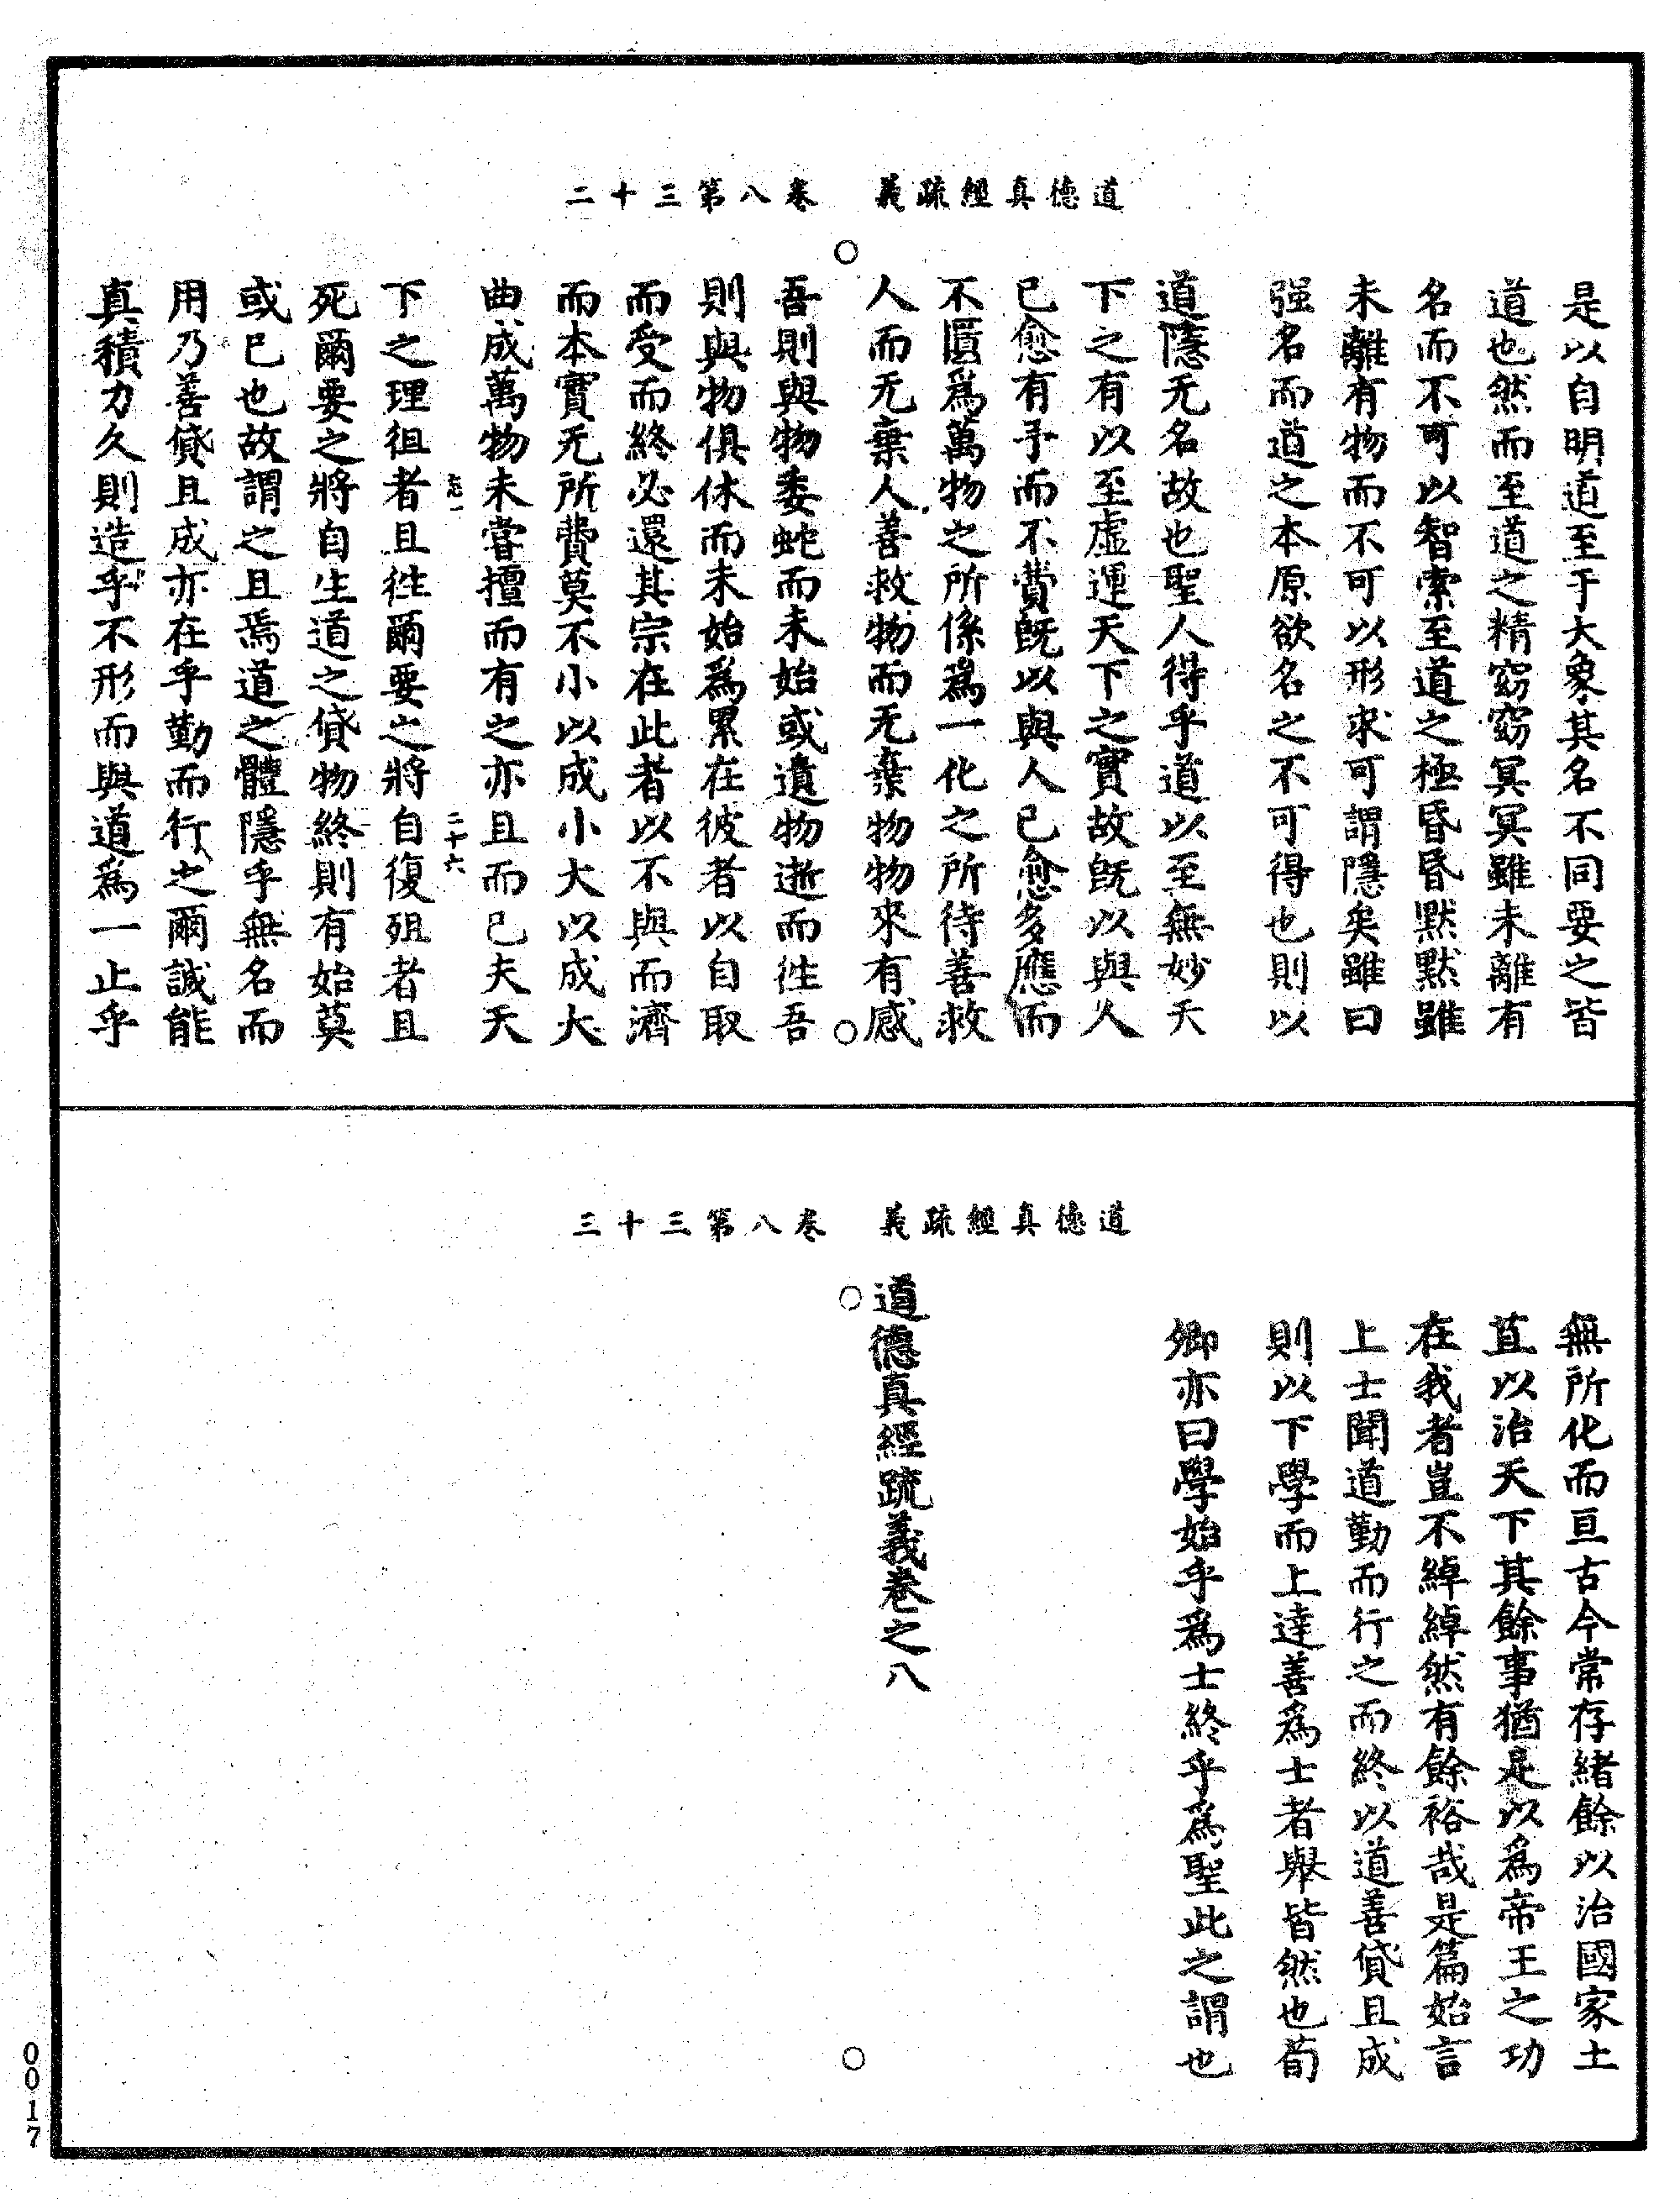 道德真經疏義　卷八第三十二
是以自明道至于大象其名不同要之皆
道也然而至道之精窈窈冥冥雖未離有
名而不可以智索至道之極昏昏默默雖
未離有物而不可以形求可謂隱矣雖曰
强名而道之本原欲名之不可得也則以
道隱无名故也聖人得乎道以至無妙天
下之有以至虛運天下之實故旣以與人
已愈有予而不費旣以與人已愈多應而
不匱爲萬物之所係爲一化之所待善救
人而无棄人善救物而无棄物物來有感
吾則與物委蛇而未始或遺物逝而徃吾
則與物俱休而未始爲累在彼者以自取
而受而終必還其宗在此者以不與而濟
而本實无所費莫不小以成小大以成大
曲成萬物未嘗擅而有之亦且而已夫天
二十六
下之理徂者且徃爾要之將自復殂者且
死爾要之將自生道之貸物終則有始莫
或已也故謂之且焉道之體隱乎無名而
用乃善貸且成亦在乎勤而行之爾誠能
真積力久則造乎不形而與道爲一止乎
道德真經疏義　卷八第三十三
無所化而亘古今常存緒餘以治國家土
苴以治天下其餘事猶是以爲帝王之功
在我者豈不綽綽然有餘裕哉是篇始言
上士聞道勤而行之而終以道善貸且成
則以下學而上達善爲士者舉皆然也荀
卿亦曰學始乎爲士終乎爲聖此之謂也
道德真經疏義卷之八
0017